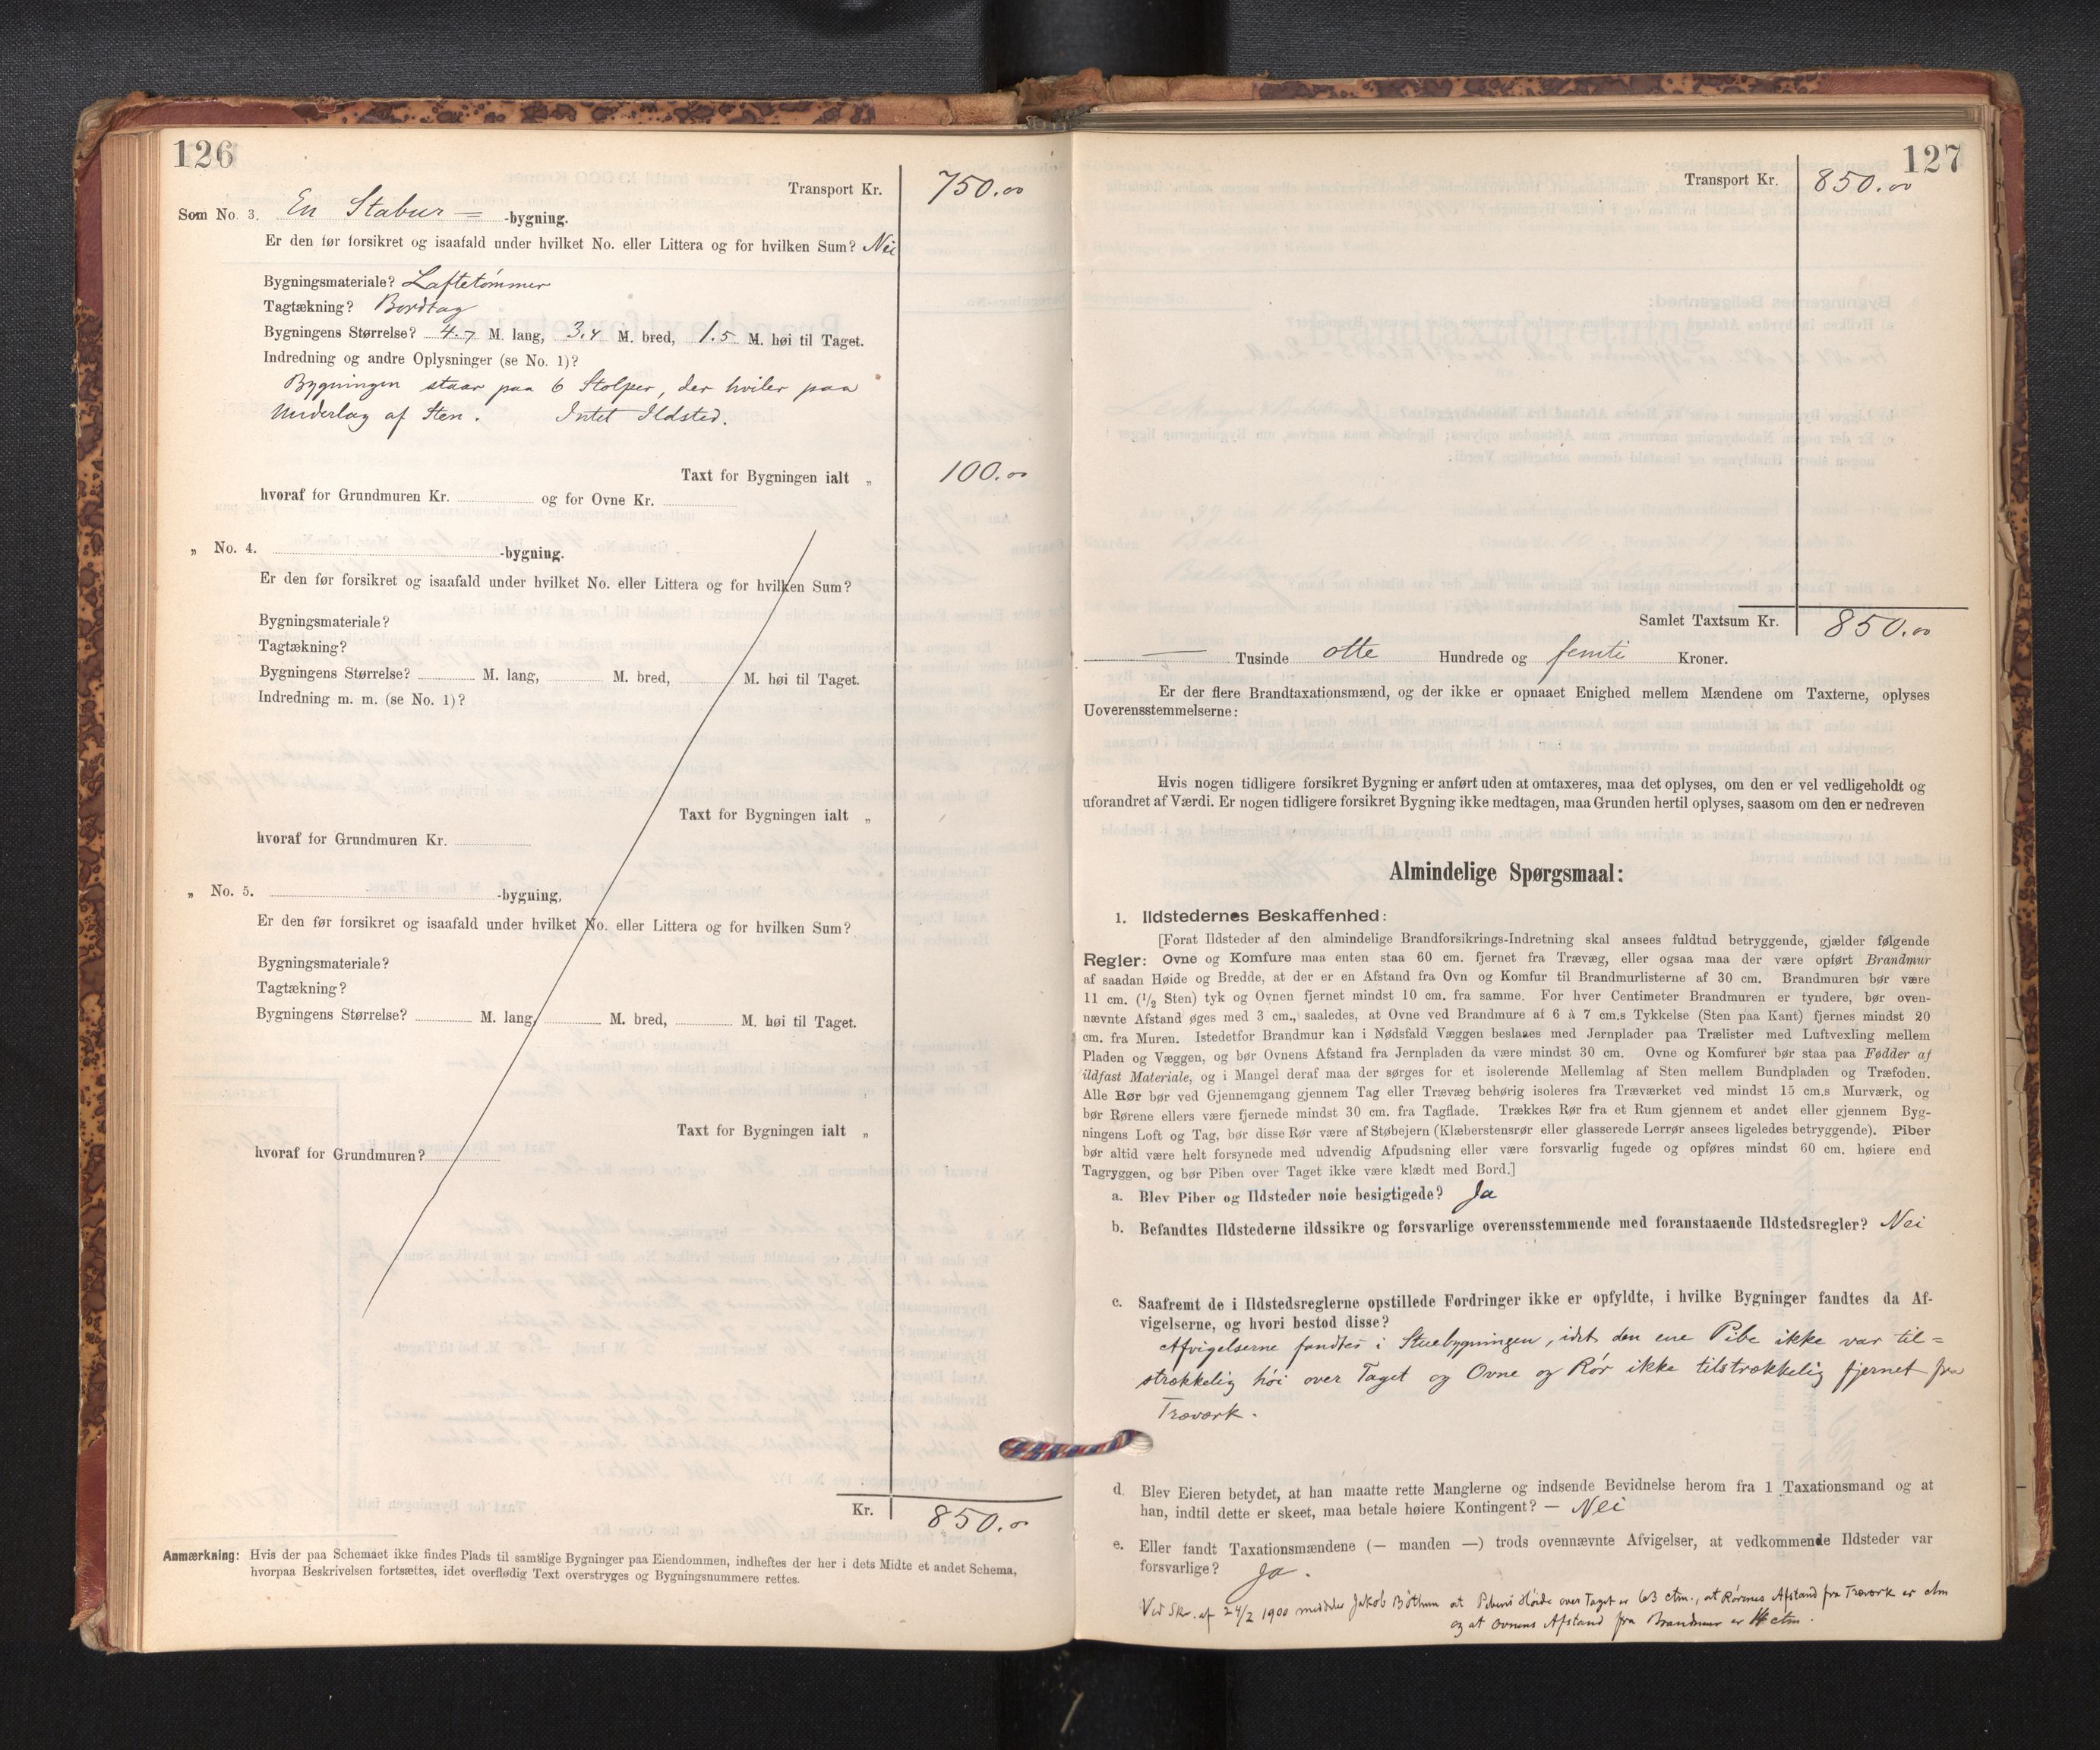 126
Transport Kr. 750.00
Som No. 3. En Stabur = -bygning.
Er den før forsikret og isaafald under hvilket No. eller Littera og for hvilken Sum? Nei
Bygningsmateriale? Laftetømmer
Tagtækning? Bordtag
Bygningens Størrelse? 4.7 M. lang, 3.4 M. bred, 1.5 M. høi til Taget.
Indredning og andre Oplysninger (se No. 1)?
Bygningen staar paa 6 Stolper, der hviler paa
Underlag af Sten. Intet Ildsted.
Taxt for Bygningen ialt „ 100.00
hvoraf for Grundmuren Kr. og for Ovne Kr.
„ No. 4. -bygning.
Er den før forsikret og isaafald under hvilket No. eller Littera og for hvilken Sum?
Bygningsmateriale?
Tagtækning?
Bygningens Størrelse? M. lang, M. bred, M. høi til Taget.
Indredning m. m. (se No. 1)?
Taxt for Bygningen ialt „
hvoraf for Grundmuren Kr.
„ No. 5. -bygning,
Er den før forsikret og isaafald under hvilket No. eller Littera og for hvilken Sum?
Bygningsmateriale?
Tagtækning?
Bygningens Størrelse? M. lang, M. bred, M. høi til Taget.
Taxt for Bygningen ialt „
hvoraf for Grundmuren?
Kr. 850.00
Anmærkning: Hvis der paa Schemaet ikke findes Plads til samtlige Bygninger paa Eiendommen, indheftes der her i dets Midte et andet Schema,
hvorpaa Beskrivelsen fortsættes, idet overflødig Text overstryges og Bygningsnummere rettes.
127
Transport Kr. 850.00
Samlet Taxtsum Kr. 850.00
— Tusinde otte Hundrede og femti Kroner.
Er der flere Brandtaxationsmænd, og der ikke er opnaaet Enighed mellem Mændene om Taxterne, oplyses
Uoverensstemmelserne:
Hvis nogen tidligere forsikret Bygning er anført uden at omtaxeres, maa det oplyses, om den er vel vedligeholdt og
uforandret af Værdi. Er nogen tidligere forsikret Bygning ikke medtagen, maa Grunden hertil oplyses, saasom om den er nedreven
Almindelige Spørgsmaal:
1. Ildstedernes Beskaffenhed:
[Forat Ildsteder af den almindelige Brandforsikrings-Indretning skal ansees fuldtud betryggende, gjælder følgende
Regler: Ovne og Komfure maa enten staa 60 cm. fjernet fra Trævæg, eller ogsaa maa der være opført Brandmur
af saadan Høide og Bredde, at der er en Afstand fra Ovn og Komfur til Brandmurlisterne af 30 cm. Brandmuren bør være
11 cm. (1/2 Sten) tyk og Ovnen fjernet mindst 10 cm. fra samme. For hver Centimeter Brandmuren er tyndere, bør oven-
nævnte Afstand øges med 3 cm., saaledes, at Ovne ved Brandmure af 6 à 7 cm.s Tykkelse (Sten paa Kant) fjernes mindst 20
cm. fra Muren. Istedetfor Brandmur kan i Nødsfald Væggen beslaaes med Jernplader paa Trælister med Luftvexling mellem
Pladen og Væggen, og bør Ovnens Afstand fra Jernpladen da være mindst 30 cm. Ovne og Komfurer bør staa paa Fødder af
ildfast Materiale, og i Mangel deraf maa der sørges for et isolerende Mellemlag af Sten mellem Bundpladen og Træfoden.
Alle Rør bør ved Gjennemgang gjennem Tag eller Trævæg behørig isoleres fra Træværket ved mindst 15 cm.s Murværk, og
bør Rørene ellers være fjernede mindst 30 cm. fra Tagflade. Trækkes Rør fra et Rum gjennem et andet eller gjennem Byg-
ningens Loft og Tag, bør disse Rør være af Støbejern (Klæberstensrør eller glasserede Lerrør ansees ligeledes betryggende). Piber
bør altid være helt forsynede med udvendig Afpudsning eller være forsvarlig fugede og opføres mindst 60 cm. høiere end
Tagryggen, og bør Piben over Taget ikke være klædt med Bord.]
a. Blev Piber og Ildsteder nøie besigtigede? Ja
b. Befandtes Ildstederne ildssikre og forsvarlige overensstemmende med foranstaaende Ildstedsregler? Nei
c. Saafremt de i Ildstedsreglerne opstillede Fordringer ikke er opfyldte, i hvilke Bygninger fandtes da Af-
vigelserne, og hvori bestod disse?
Afvigelserne fandtes i Stuebygningen, idet den ene Pibe ikke var til=
strækkelig høi over Taget og Ovne og Rør ikke tilstrækkelig fjernet fra
Træværk.
d. Blev Eieren betydet, at han maatte rette Manglerne og indsende Bevidnelse herom fra 1 Taxationsmand og at
han, indtil dette er skeet, maa betale høiere Kontingent? — Nei
e. Eller fandt Taxationsmændene (— manden —) trods ovennævnte Afvigelser, at vedkommende Ildsteder var
forsvarlige? Ja.
Ved Skr. af 24/2 1900 meddeler Jakob Bøthun at Pibens Høide over Taget er 63 ctm., at Rørenes Afstand fra Træværk er ctm
og at Ovnens Afstand fra Brandmur er 14 ctm.